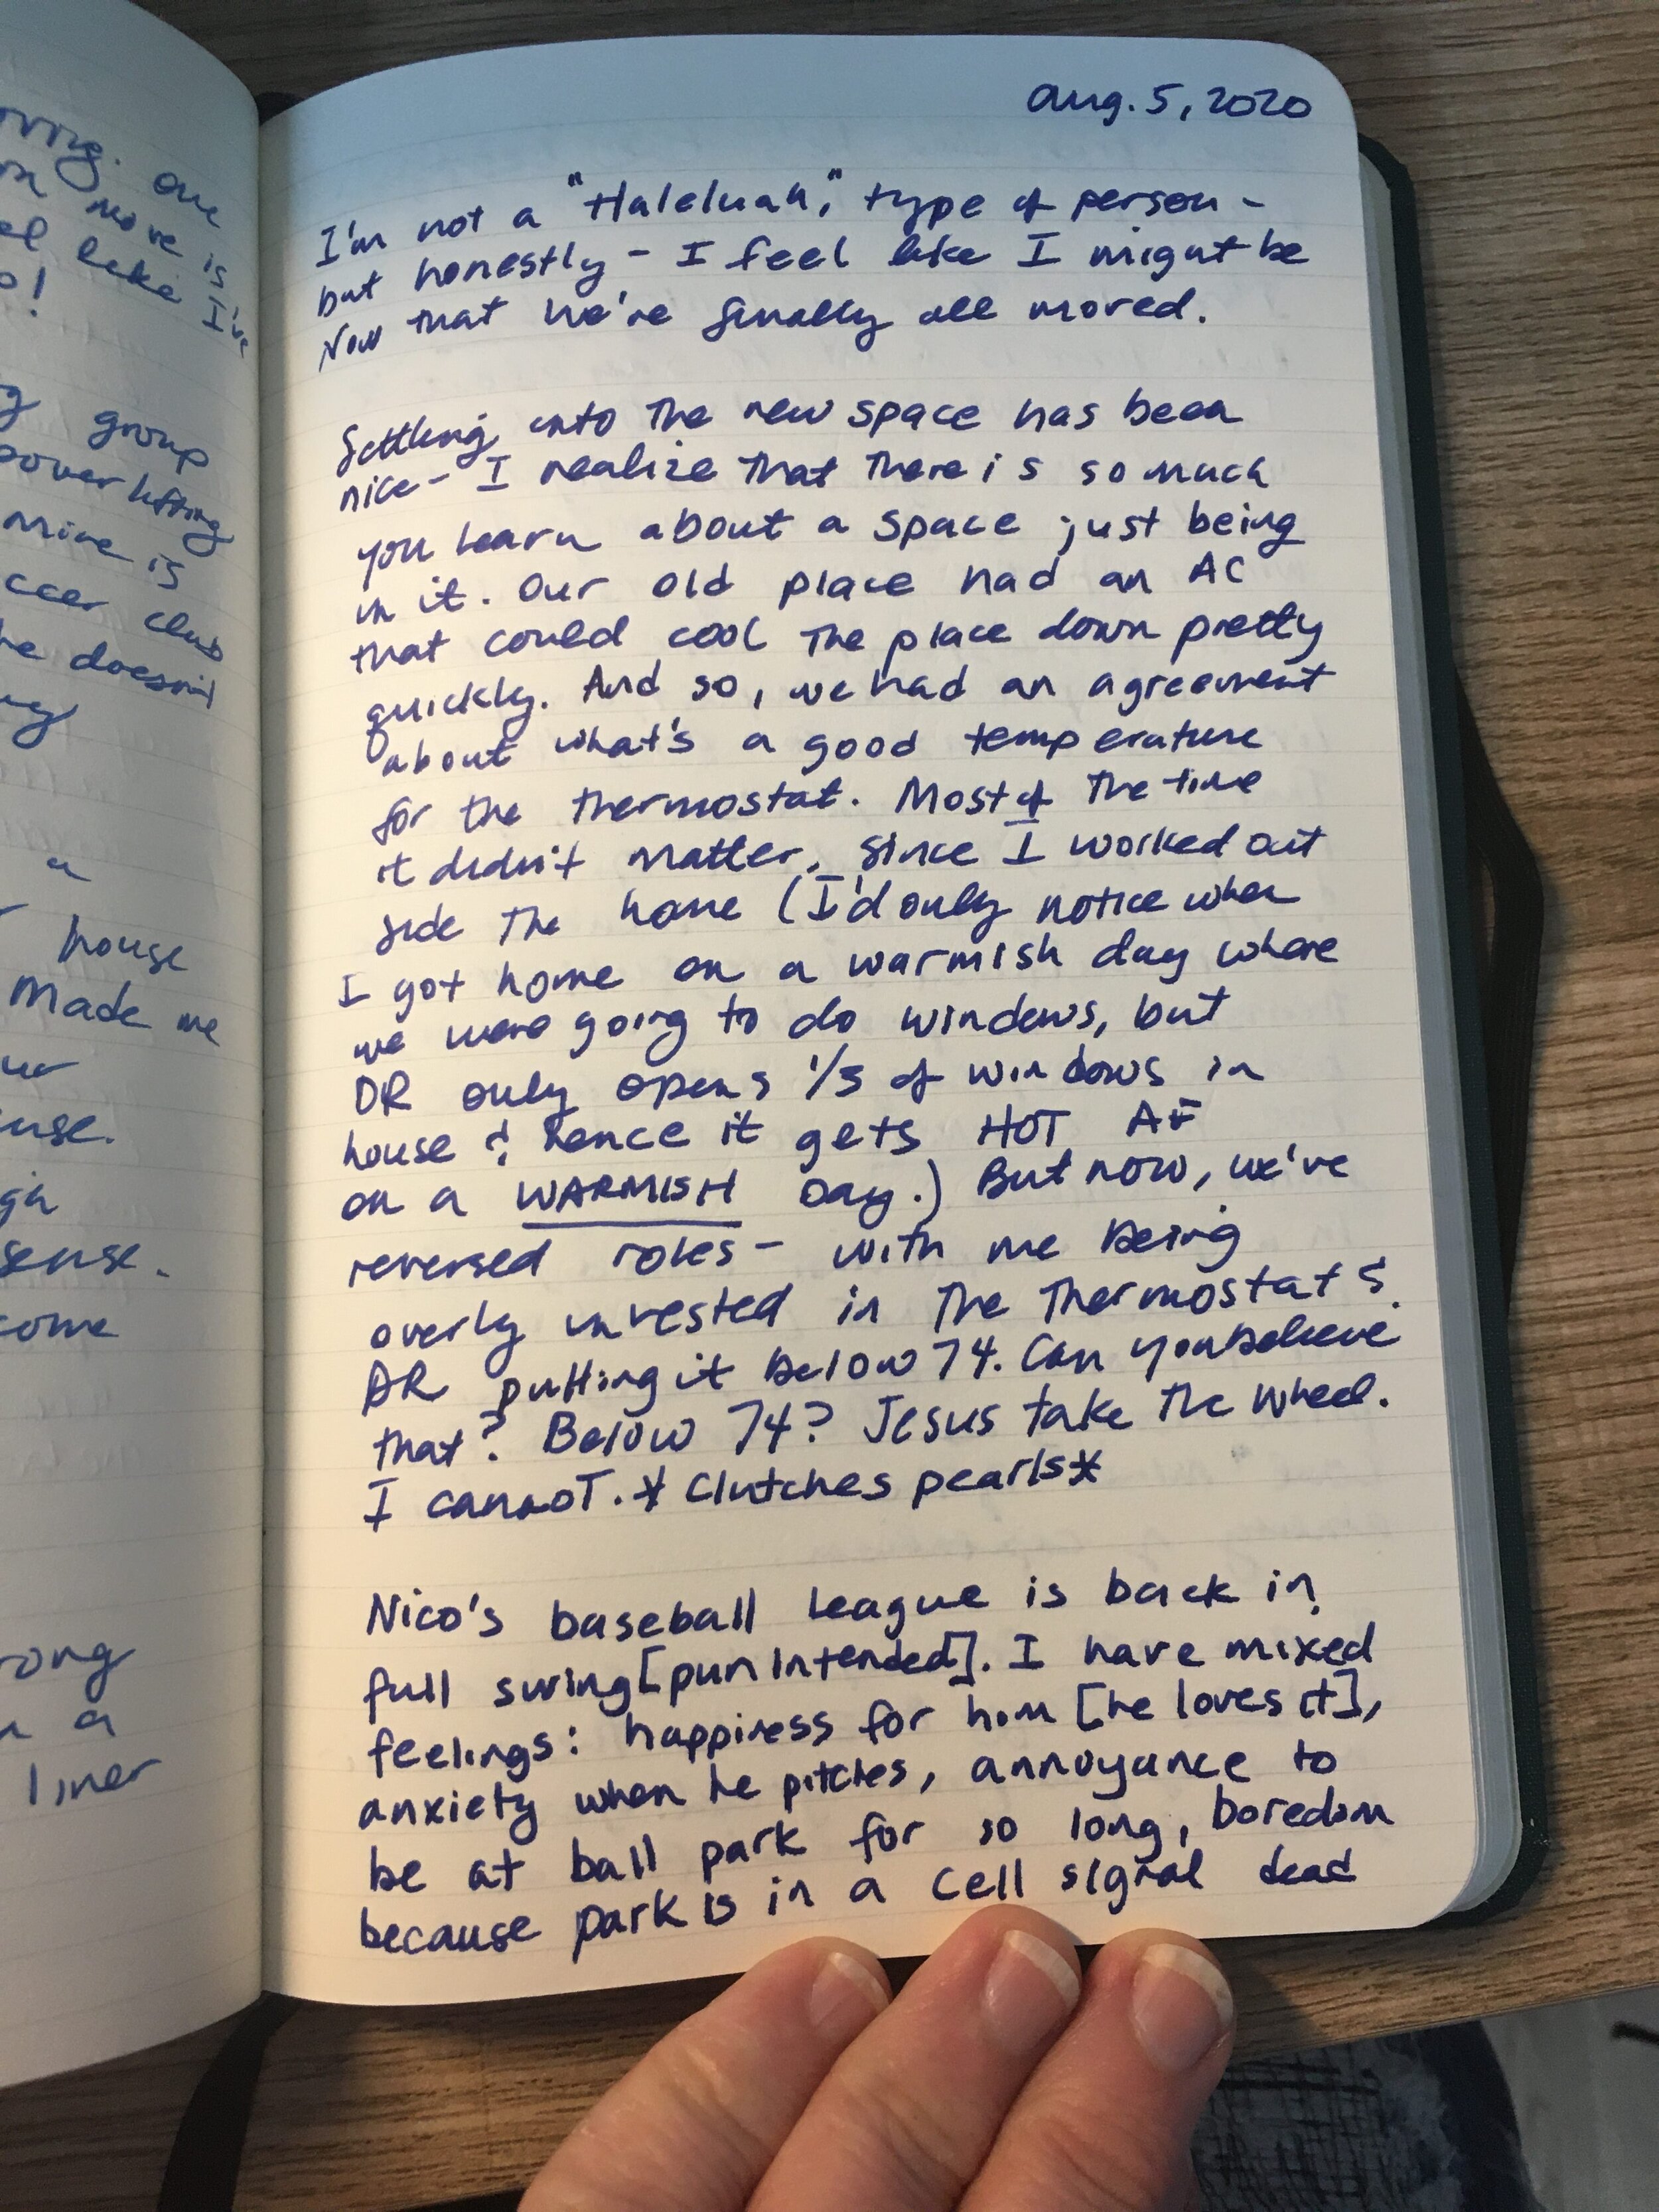 one
move is
like I've
group
powerlifting
Mine is
club
he doesn't
a
house
Made me
sense.
come
a
liner
Aug. 5, 2020
I'm not a "Haleluah," type of person -
but honestly - I feel like I might be
Now that we've finally all moved.
Settling into the new space has been
nice - I realize that there is so much
you learn about a space just being
in it. Our old place had an AC
that could cool the place down pretty
quickly. And so, we had an agreement
about what's a good temperature
for the thermostat. Most of the time
it didn't matter, since I worked out
side the home (I'd only notice when
I got home on a warmish day where
we were going to do windows, but
DR only opens 1/3 of windows in
house & hence it gets HOT AF
on a WARMISH day.) But now, we've
reversed roles - with me being
overly invested in the thermostat &
DR putting it below 74. Can you believe
that? Below 74? Jesus take the wheel.
I cannot. *clutches pearls*
Nico's baseball league is back in
full swing [pun intended]. I have mixed
feelings: happiness for him [he loves it],
anxiety when he pitches, annoyance to
be at ball park for so long, boredom
because park is in a cell signal dead